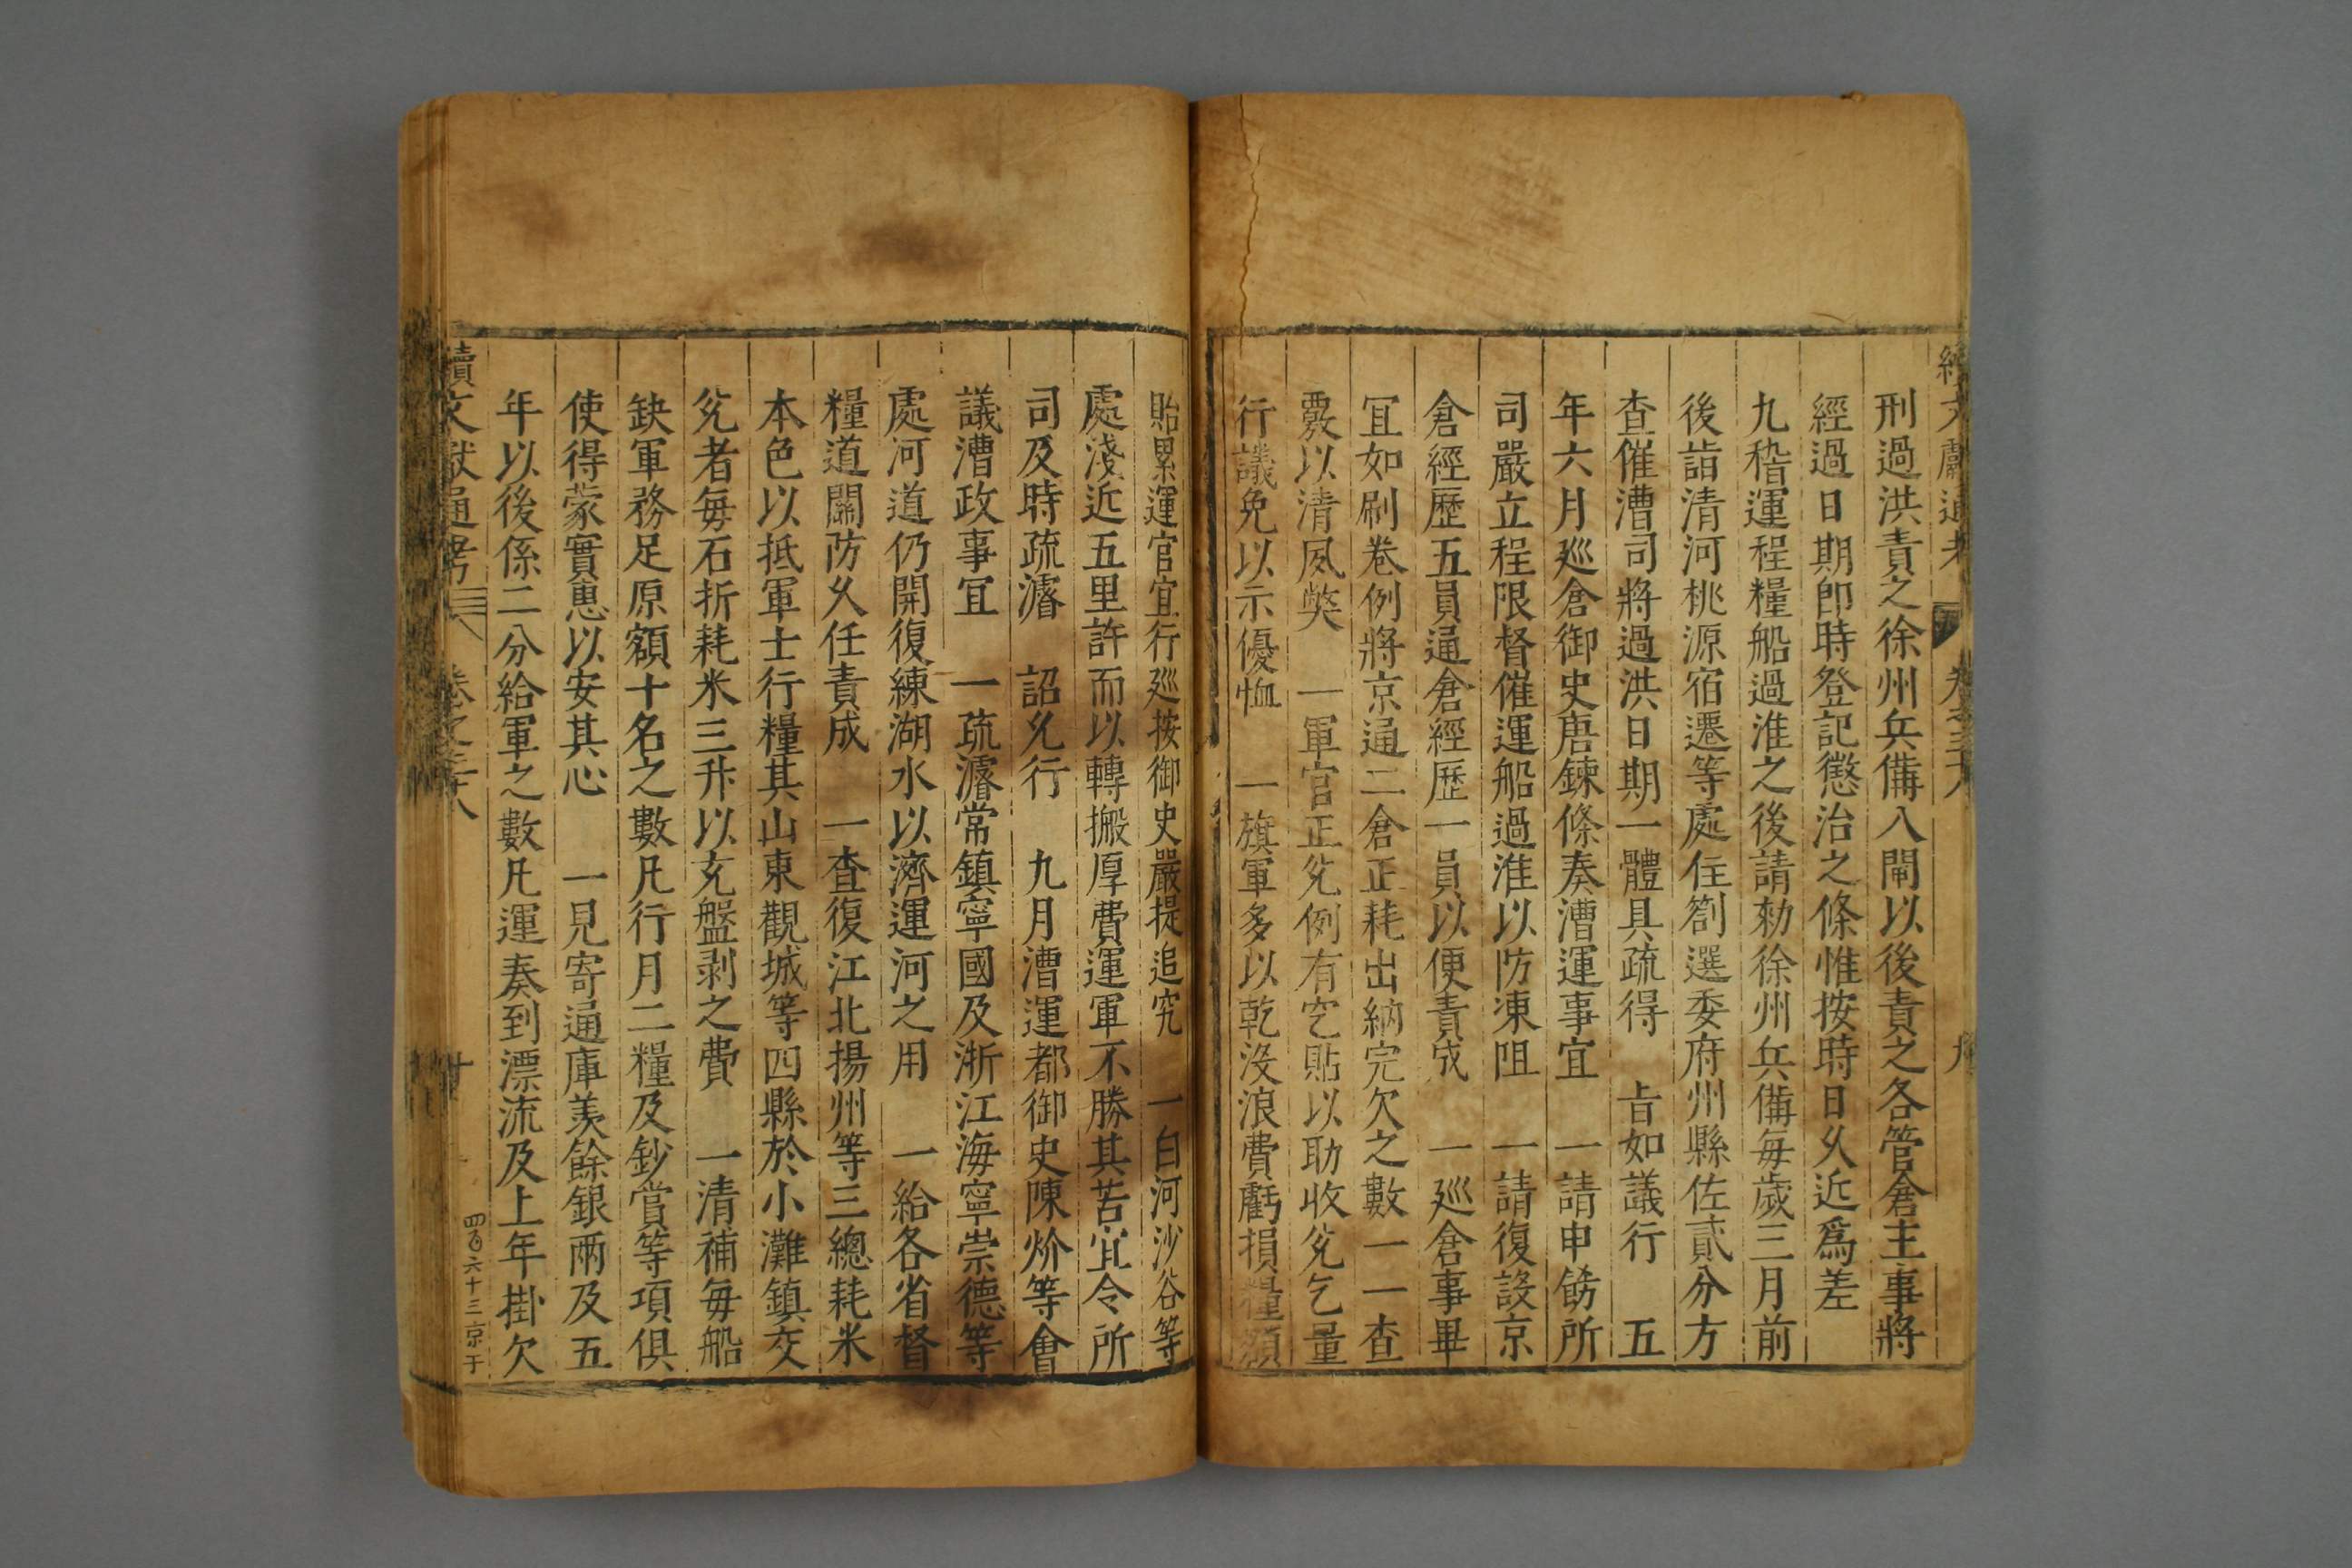 續文獻通考 卷之三十八 九
刑過洪責之徐州兵備入閘以後責之各管倉主事將
經過日期即時登記懲治之條惟按時日久近爲差
九稽運程糧船過淮之後請勑徐州兵備每歲三月前
後詣清河桃源宿遷等處住劄選委府州縣佐貳分方
查催漕司將過洪日期一體具疏得 旨如議行 五
年六月廵倉御史唐鍊條奏漕運事宜 一請申飭所
司嚴立程限督催運船過淮以防凍阻 一請復設京
倉經歷五員通倉經歷一員以便責成 一廵倉事畢
宜如刷卷例將京通二倉正耗出納完欠之數一一查
覈以清夙獘 一軍官正兊例有空貼以助收兊乞量
行議免以示優恤 一旗軍多以乾沒浪費虧損糧額
貽累運官宜行廵按御史嚴提追究 一白河沙谷等
處淺近五里許而以轉搬厚費運軍不勝其苦宜令所
司及時疏濬 詔允行 九月漕運都御史陳炌等會
議漕政事宜 一疏濬常鎮寧國及浙江海寧崇德等
處河道仍開復練湖水以濟運河之用 一給各省督
糧道關防久任責成 一查復江北揚州等三總耗米
本色以抵軍士行糧其山東觀城等四縣於小灘鎮交
兊者每石折耗米三升以充盤剥之費 一清補每船
缺軍務足原額十名之數凡行月二糧及鈔賞等項俱
使得蒙實惠以安其心 一見寄通庫羨餘銀兩及五
年以後係二分給軍之數凡運奏到漂流及上年掛欠
續文獻通考 卷之三十八 十 四百六十三 京于